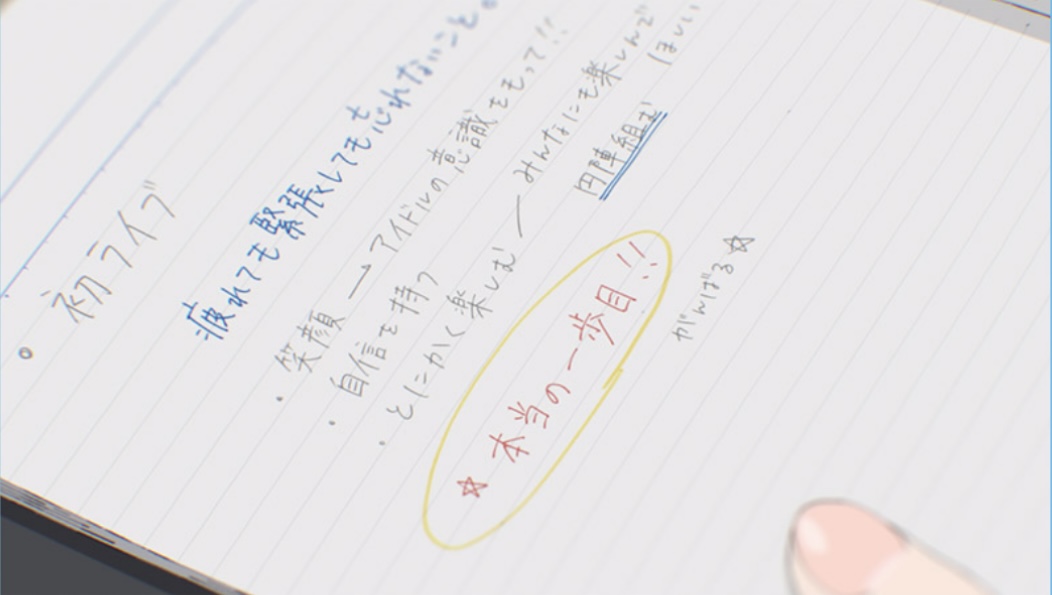 初ライブ
疲れても緊張しても忘れないこと。
・笑顔→アイドルの意識をもって!!
・自信を持つ
・とにかく楽しむ―みんなにも楽しんで
ほしい
円陣組む
☆本当の一歩目!!
がんばる☆